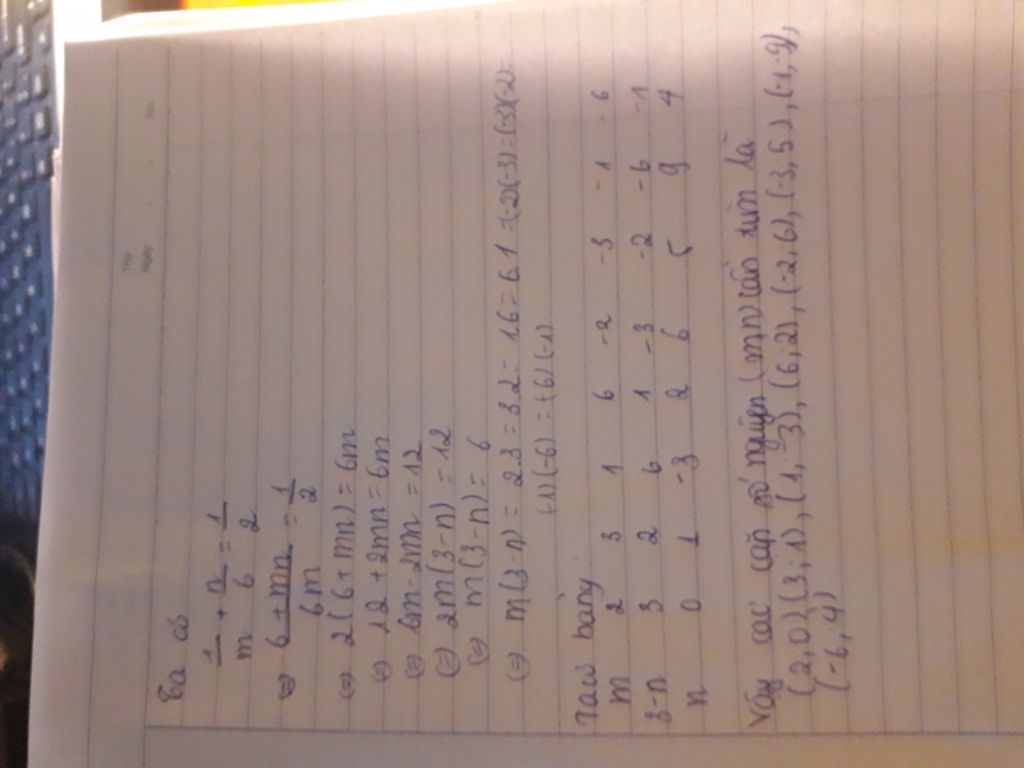 Thứ
Ngày
No.
Ta có
1/m + n/6 = 1/2
⇔ 6 + mn / 6m = 1/2
⇔ 2(6 + mn) = 6m
⇔ 12 + 2mn = 6m
⇔ 6m - 2mn = 12
⇔ 2m(3-n) = 12
⇔ m(3-n) = 6
⇔ m(3-n) = 2.3 = 3.2 = 1.6 = 6.1 = (-2)(-3) = (-3)(-2) =
(-1)(-6) = (-6)(-1)
Taco bảng
m 2 3 1 6 -2 -3 -1 -6
3-n 3 2 6 1 -3 -2 -6 -1
n 0 1 -3 2 6 5 9 4
Vậy các cặp số nguyên (m,n) cần tìm là
(2,0) (3;1), (1,-3), (6;2), (-2;6), (-3,5), (-1,-9),
(-6,4)